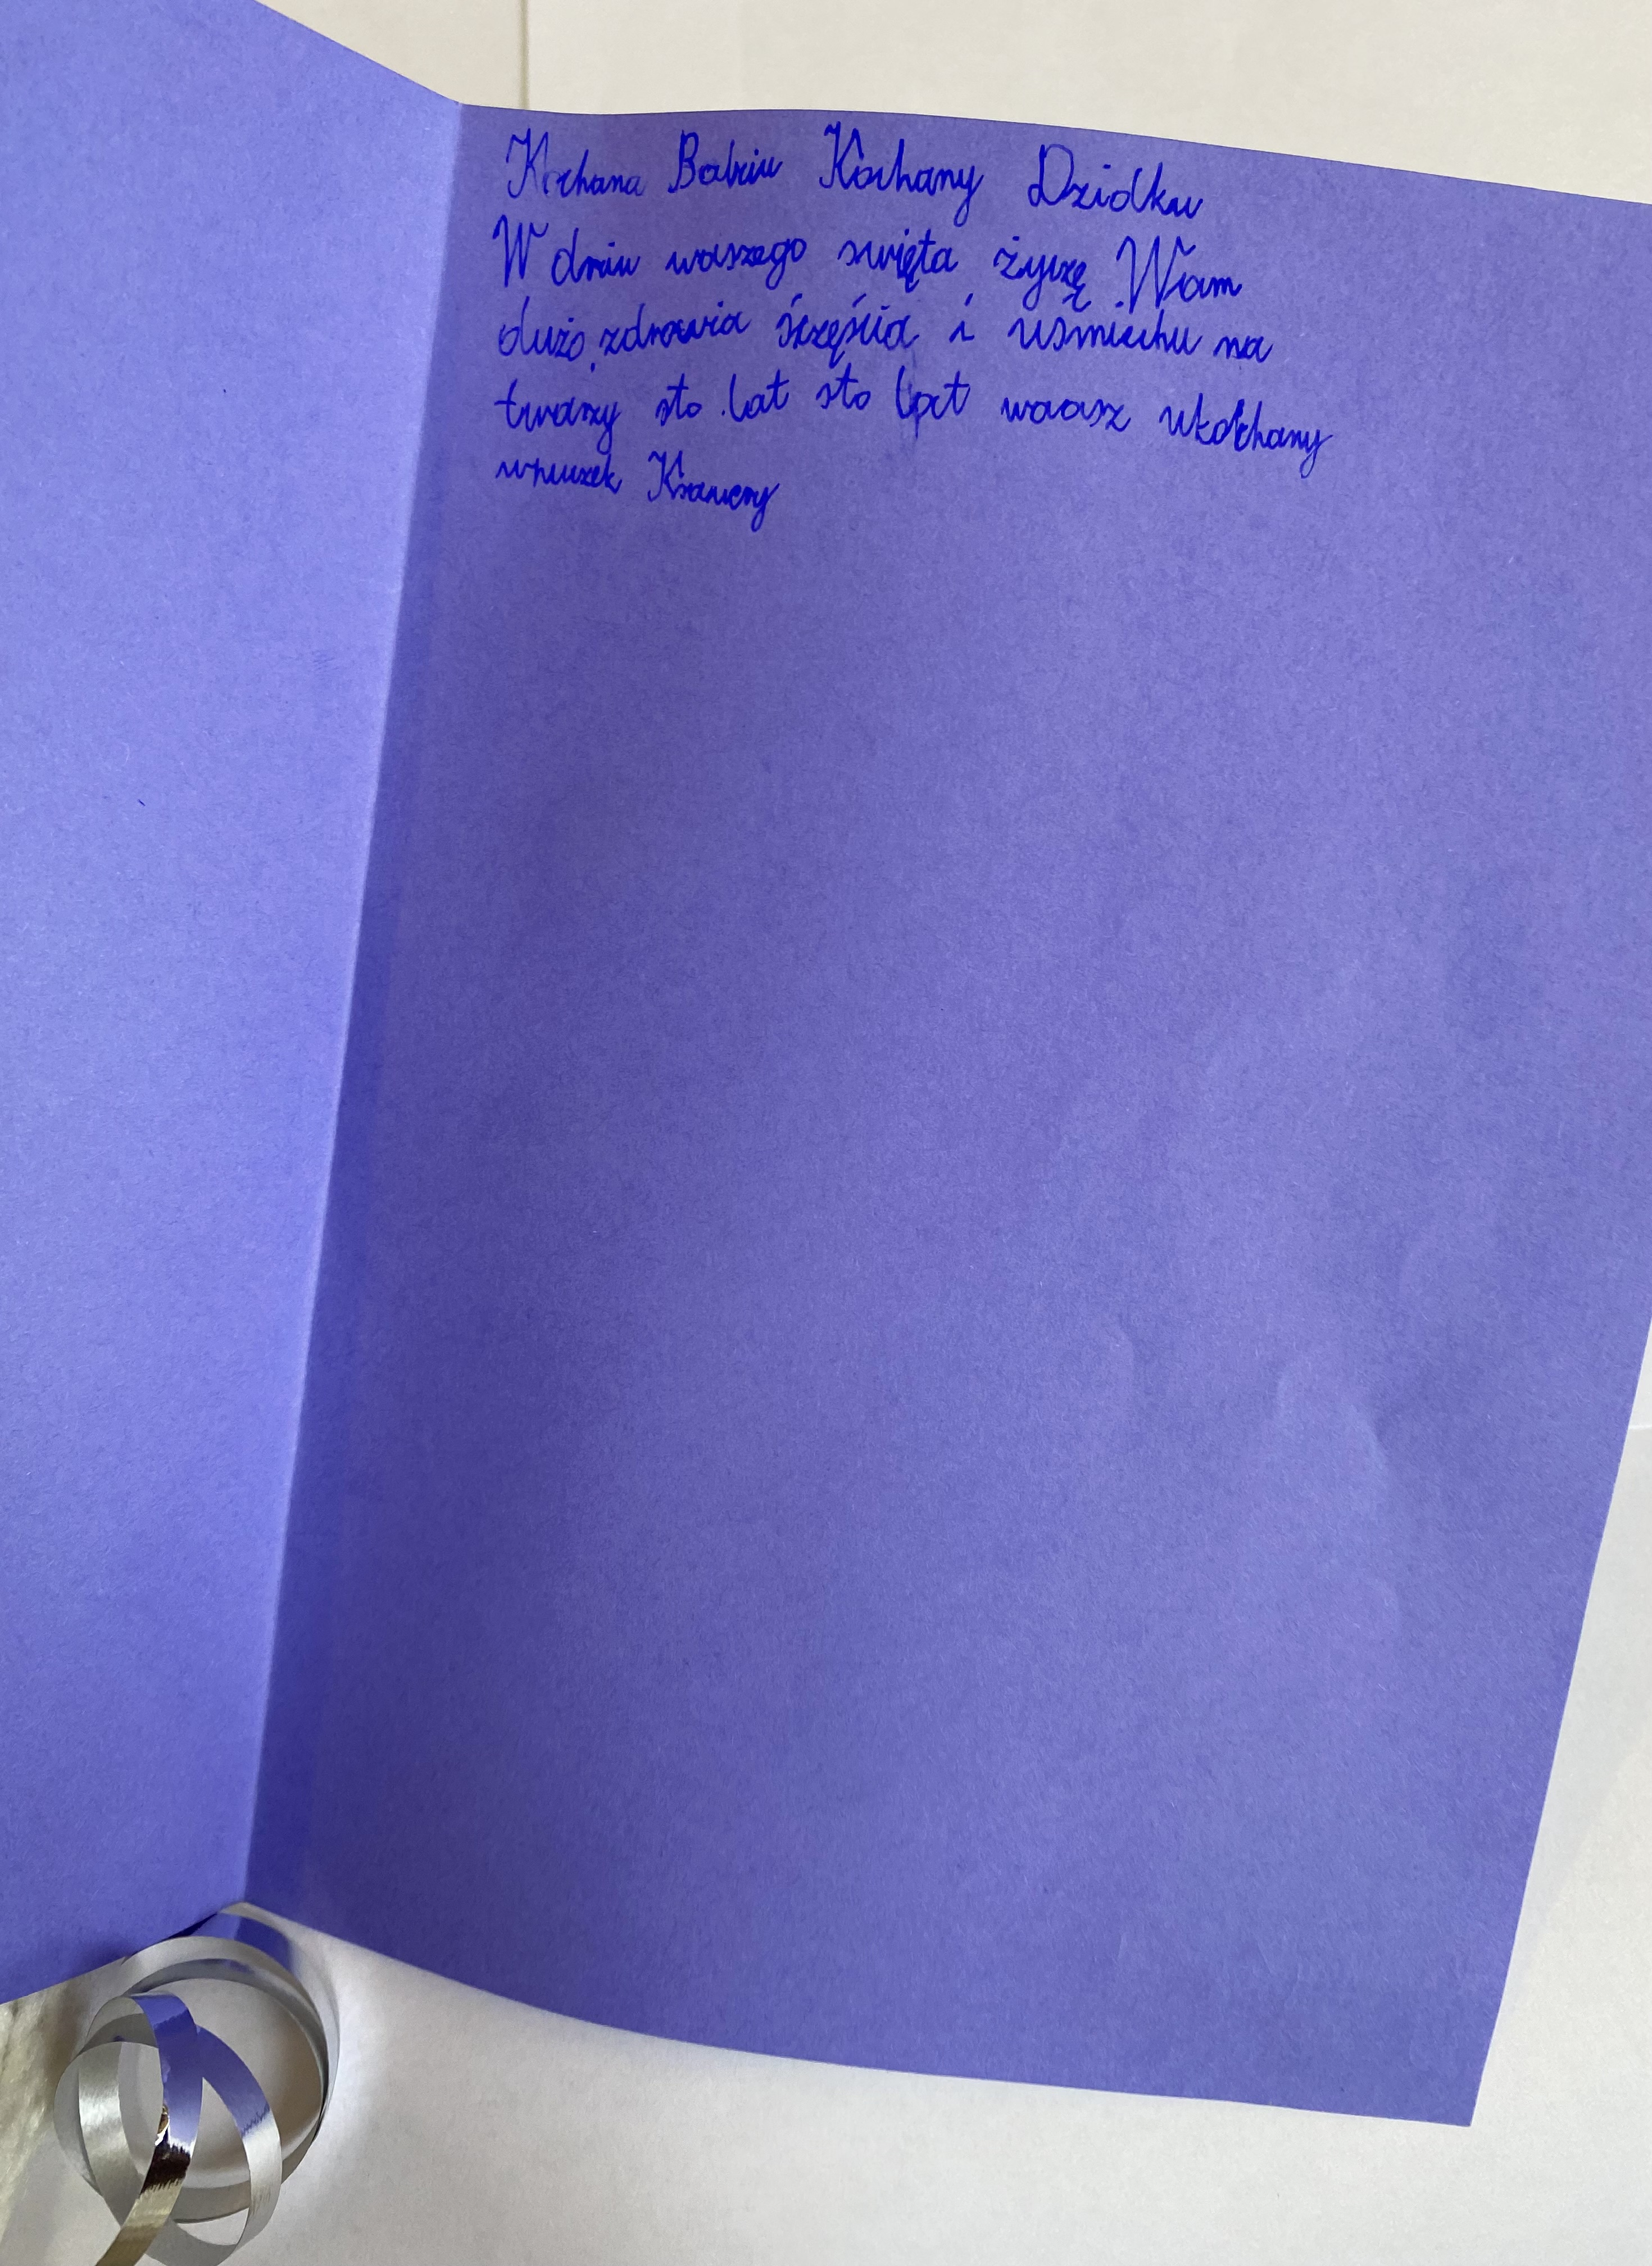 Kochana Babciu Kochany Dzidku
W dniu waszego swięta życzę Wam
dużo zdrowia śzęścia i usmiechu na
twarzy sto lat sto lat waasz ukochany
wnuzek Ksawery